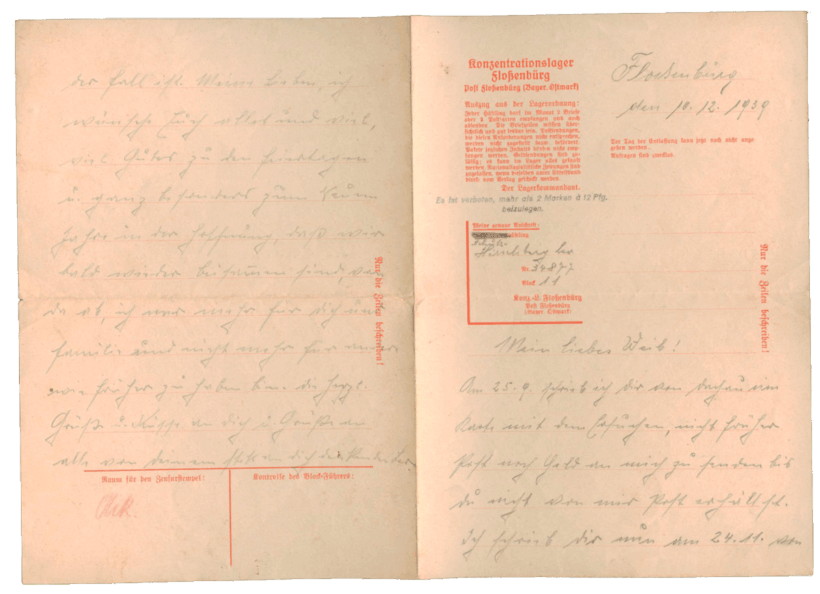 der Fall ist. Meine Lieben, ich
wünsche Euch alles und viel,
viel Gutes zu den Feiertagen
u. ganz besonders zum Neuen
Jahre in der Hoffnung, daß wir
bald wieder beisammen sind, von
da ab, ich nur mehr für dich und
Familie und nicht mehr für andere
wie früher zu haben bin. die herzl.
Grüße u. Küsse an dich u. Grüße an
alle von deinem
Nur die Zeilen beschreiben!
Raum für den Zensorstempel:
Kontrolle des Block-Führers:
Konzentrationslager
Floßenbürg
Post Floßenbürg (Bayer. Ostmark)
Auszug aus der Lagerordnung:
Jeder Häftling darf im Monat 2 Briefe
oder 2 Postkarten empfangen und auch
absenden. Die Briefzeilen müssen über-
sichtlich und gut lesbar sein. Postsendungen,
die diesen Anforderungen nicht entsprechen,
werden nicht zugestellt bezw. befördert.
Pakete jeglichen Inhalts dürfen nicht emp-
fangen werden. Geldsendungen sind zu-
lässig; es kann im Lager alles gekauft
werden. Nationalsozialistische Zeitungen sind
zugelassen, wenn dieselben
vom Verlag geschickt werden.
Der Lagerkommandant.
Es ist verboten, mehr als 2 Marken à 12 Pfg.
beizulegen.
Flossenbürg
den 10.12.1939
Der Tag der Entlassung kann jetzt noch nicht ange
geben werden.
Anfragen sind zwecklos.
Meine genaue Anschrift:
Schutz-
Nr. 34877
Block 11
Konz.-L. Floßenbürg
Post Floßenbürg
(Bayer. Ostmark)
Nur die Zeilen beschreiben!
Mein liebes Weib!
Am 25.9. schrieb ich dir von Dachau eine
Karte mit dem Ersuchen, nicht früher
Post noch Geld an mich zu senden bis
du nicht von mir Post erhältst.
Ich schrieb dir nun am 24.11. von